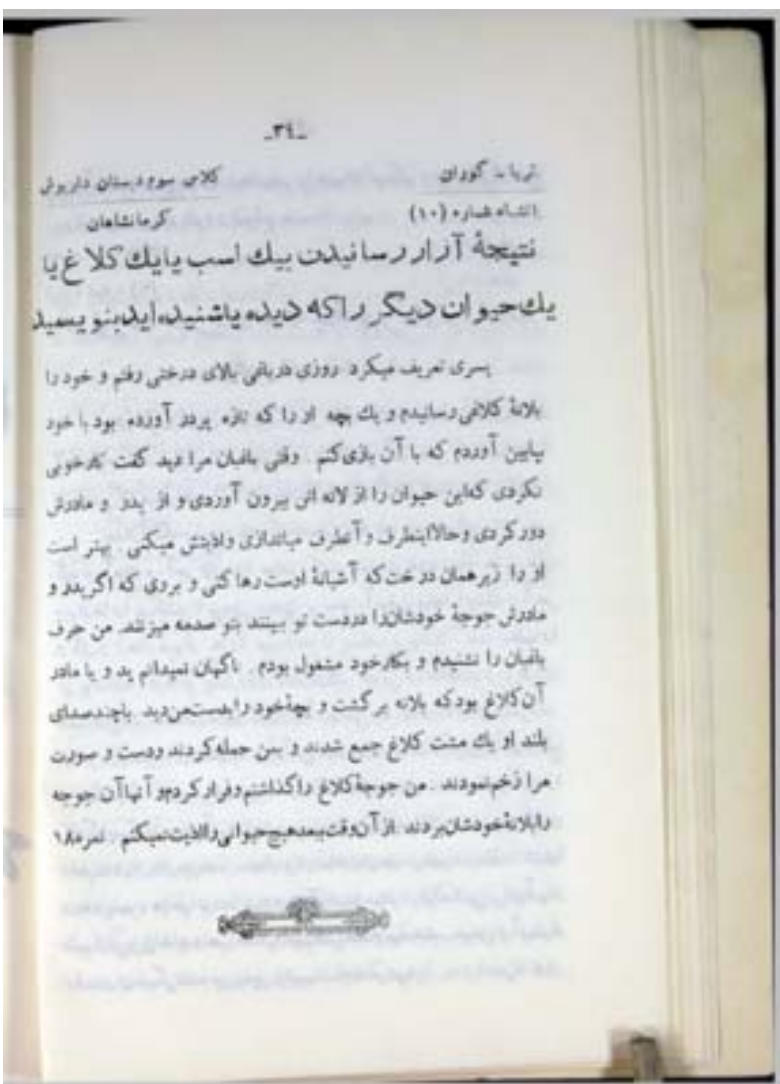 ـ۳٤ـ
ثریا ـ گوران
کلاس سوم دبستان داریوش
انشاء شماره (۱۰)
کرمانشاهان
نتیجهٔ آزار رسانیدن بیك اسب یا یك کلاغ یا
یك حیوان دیگر را که دیده یا شنیده اید بنویسید
پسری تعریف میکرد روزی در باغی بالای درختی رفتم و خود را
بلانهٔ کلاغی رسانیدم و یك بچه او را که تازه پردر آورده بود با خود
بپایین آوردم که با آن بازی کنم . وقتی باغبان مرا دید گفت کار خوبی
نکردی که این حیوان را از لانه اش بیرون آوردی و از پدر و مادرش
دور کردی و حالا اینطرف و آنطرف میاندازی و اذیتش میکنی . بهتر است
او را زیر همان درخت که آشیانهٔ اوست رها کنی و بروی که اگر پدر و
مادرش جوجهٔ خودشان را در دست تو ببینند بتو صدمه میزنند. من حرف
باغبان را نشنیدم و بکار خود مشغول بودم . ناگهان نمیدانم پد و یا مادر
آن کلاغ بود که بلانه برگشت و بچهٔ خود را بدست من دید با چند صدای
بلند او یك مشت کلاغ جمع شدند و بمن حمله کردند و دست و صورت
مرا زخم نمودند . من جوجهٔ کلاغ را گذاشتم و فرار کردم و آنها آن جوجه
را بلانهٔ خودشان بردند از آن وقت ببعد هیچ حیوانی را اذیت نمیکنم . نمره ۱۸